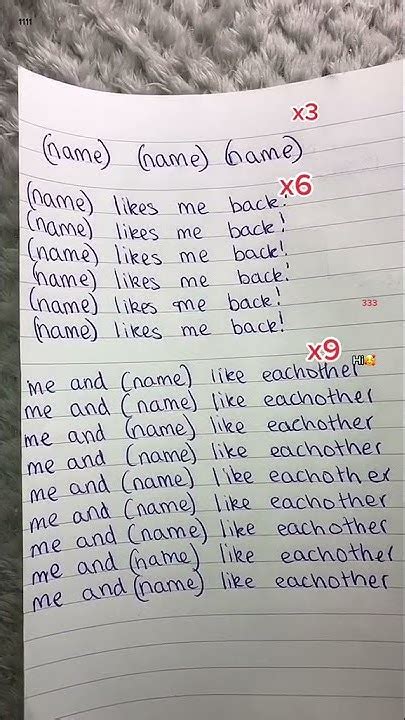 1111
x3
(name) (name) (name)
x6
(name) likes me back!
(name) likes me back!
(name) likes me back!
(name) likes me back!
(name) likes me back!
333
(name) likes me back!
x9
Hi🥰
me and (name) like eachother
me and (name) like eachother
me and (name) like eachother
me and (name) like eachother
me and (name) like eachother
me and (name) like eachother
me and (name) like eachother
me and (name) like eachother
me and (name) like eachother